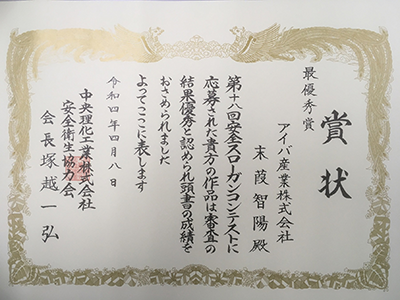 賞状
最優秀賞
アイバ産業株式会社
末葭智陽殿
第十八回安全スローガンコンテストに
応募された貴方の作品は審査の
結果優秀と認められ頭書の成績を
おさめられました
よってここに表します
令和四年四月八日
中央理化工業株式会社
安全衛生協力会
会長塚越一弘